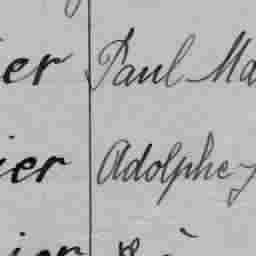 er Paul Ma
ier Adolphe